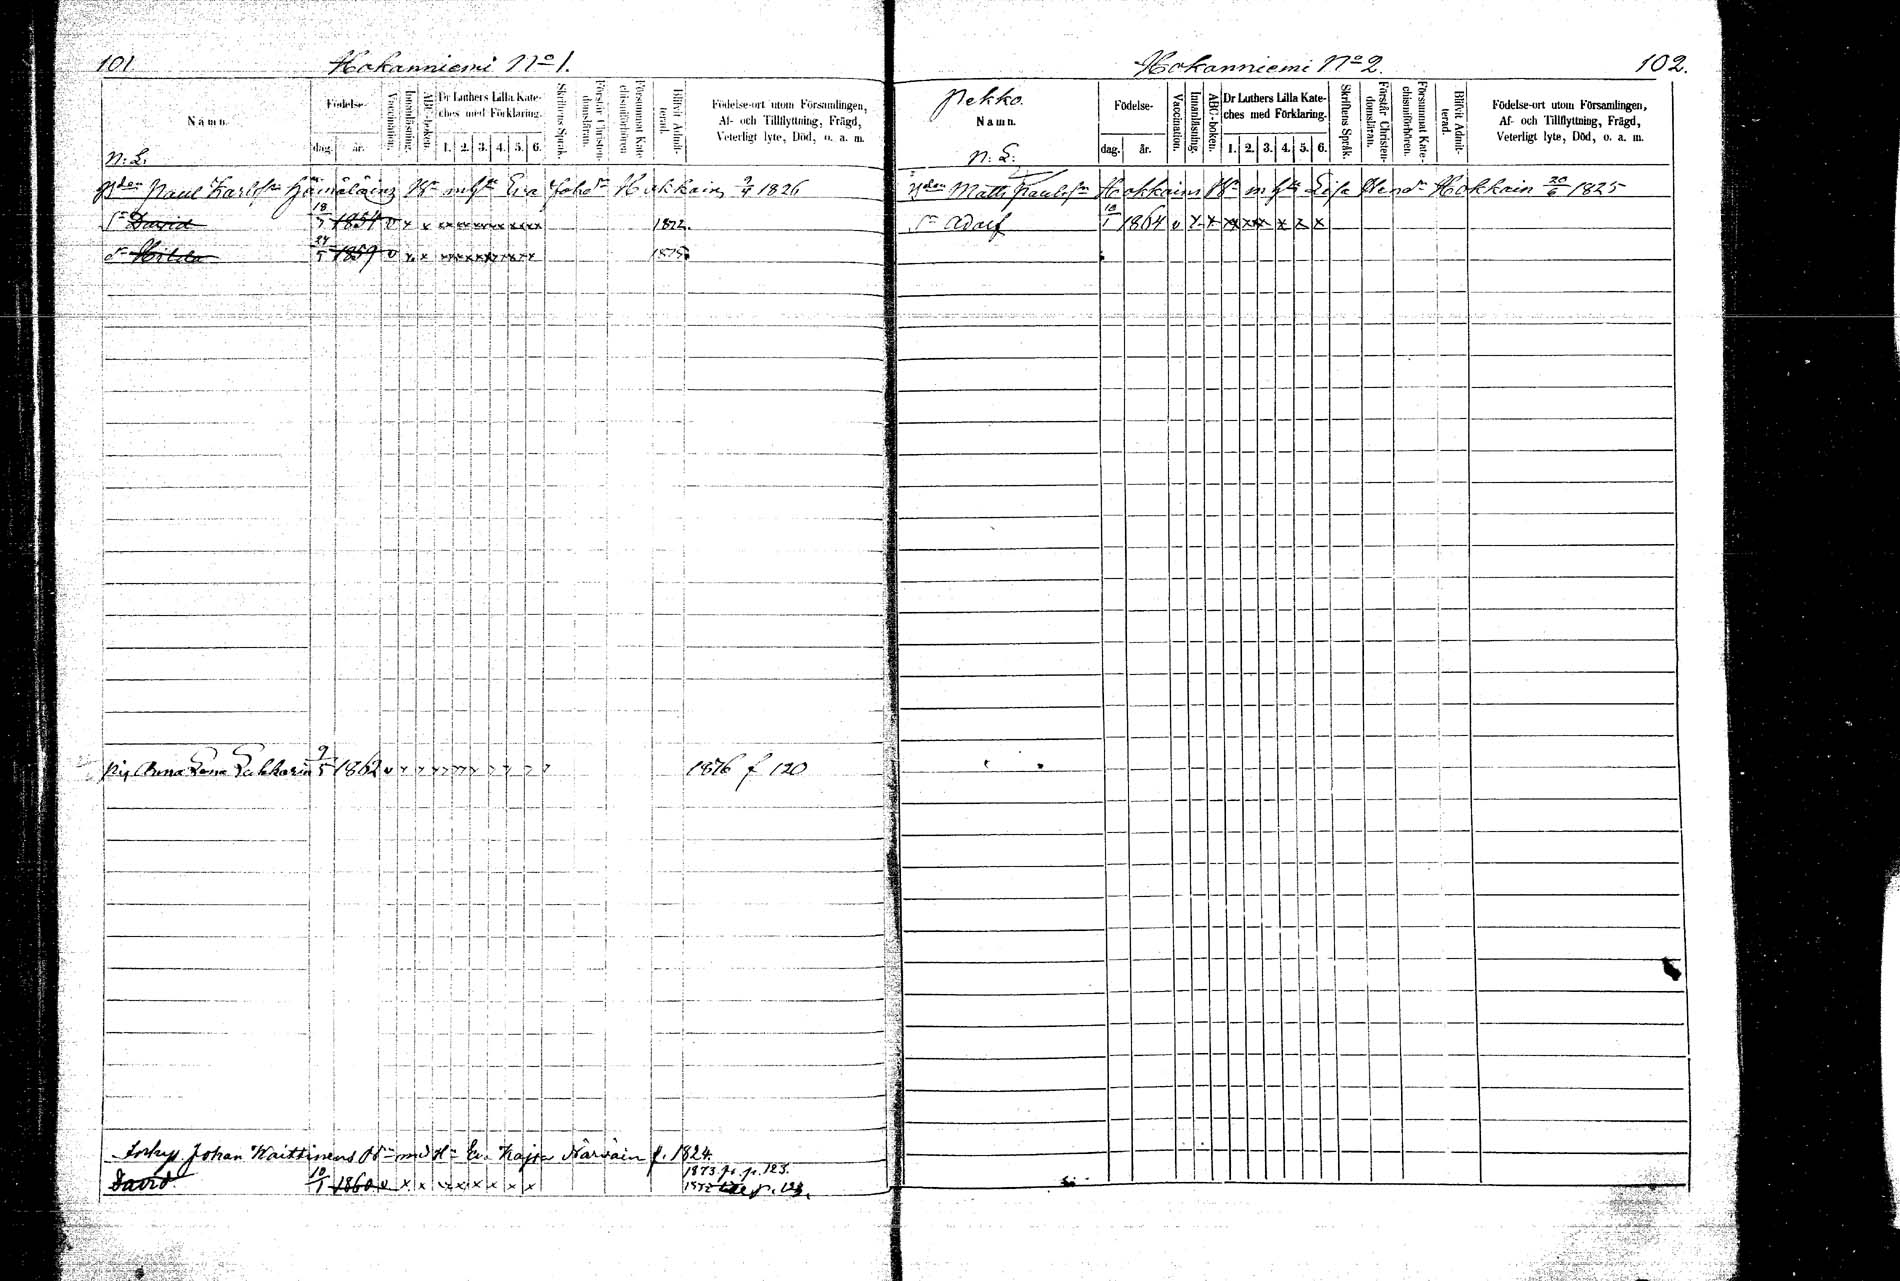 101. Hokanniemi No 1.
Namn.
N: L.
Födelse-
dag. år.
Vaccination.
Innanläsning.
ABC-boken.
Dr Luthers Lilla Kate-
ches med Förklaring.
1. 2. 3. 4. 5. 6.
Skriftens Språk.
Förstår Christen-
domsläran.
Försummat Kate-
chismiförhören
Blifvit Admit-
terad.
Födelse-ort utom Församlingen,
Af- och Tillflyttning, Frägd,
Veterligt lyte, Död, o. a. m.
Bden Paul Karlssn Hämäläins Bn m Hn Eva Johdr Hokkain 2/4 1826
Sn David 18/7 1854 v x x xx xx xx x xx 1872.
dr Hilda 24/5 1859 v x x xx xx xx x x x 1875
Pig Anna Lena 9/5 1862 v 1876 f 120
Johan Kaittinens Bn med Hn Eva Kajsa Närväin f. 1824.
1873 p. p. 123.
David 10/1 1860 v x x x x x x x x p. 123.
Hokanniemi No 2. 102.
Pekko.
Namn.
N: L:
Födelse-
dag. år.
Vaccination.
Innanläsning.
ABC-boken.
Dr Luthers Lilla Kate-
ches med Förklaring.
1. 2. 3. 4. 5. 6.
Skriftens Språk.
Förstår Christen-
domsläran.
Försummat Kate-
chismiförhören.
Blifvit Admit-
terad.
Födelse-ort utom Församlingen,
Af- och Tillflyttning, Frägd,
Veterligt lyte, Död, o. a. m.
Bden Matts Paulssn Hokkains Bn m Hn Lisa Hendr Hokkain 20/6 1825
Sn Adolf 18/1 1864 v x x xx xx x x x x